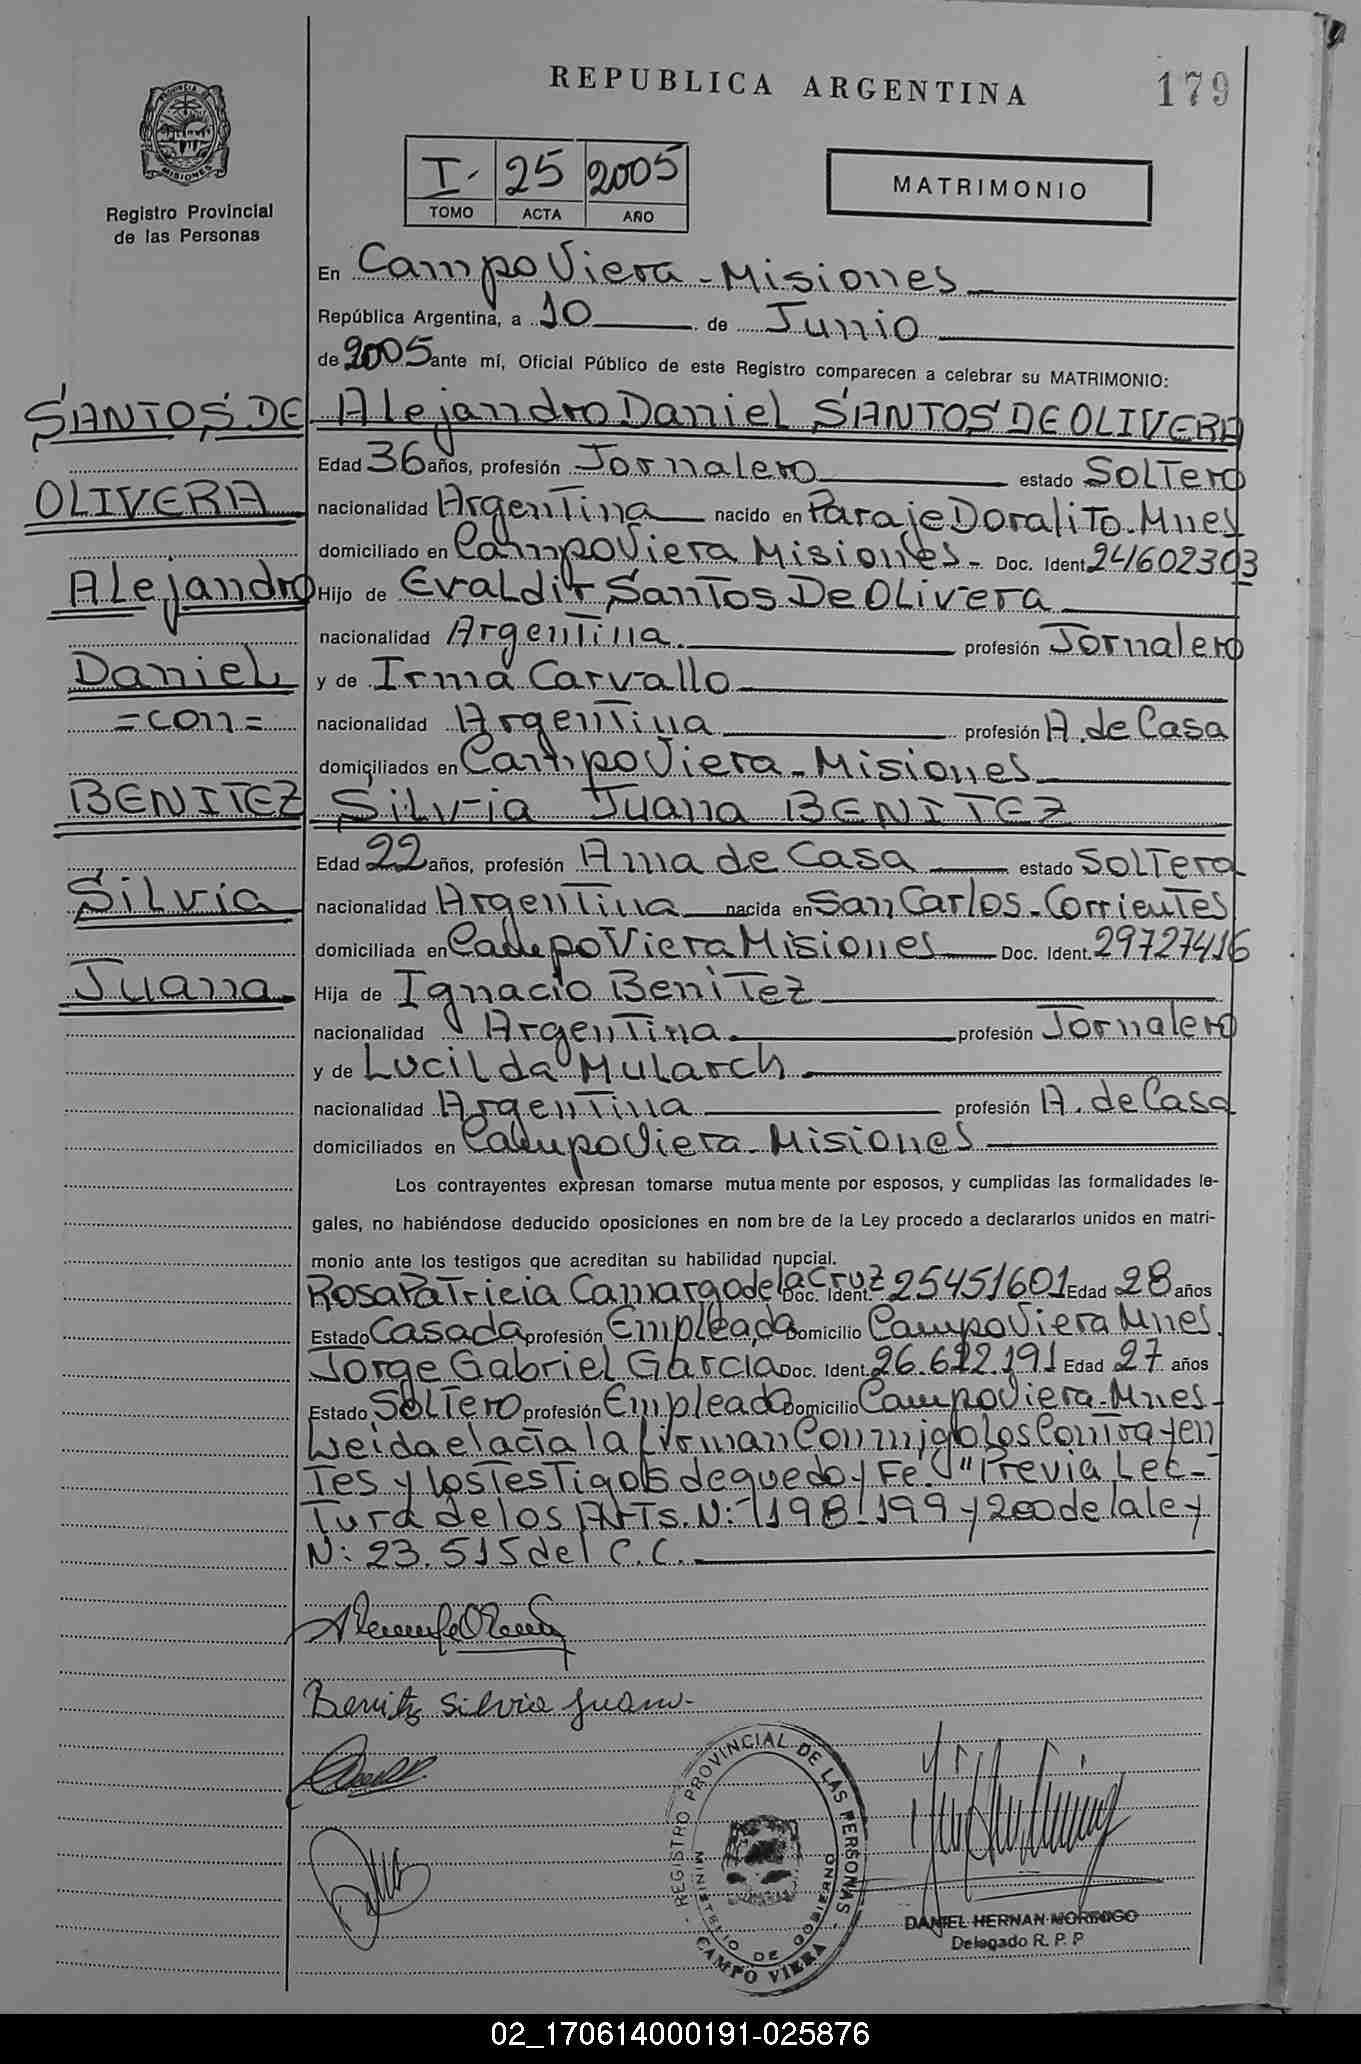 REPUBLICA ARGENTINA
179
PROVINCIA DE
MISIONES
Registro Provincial
de las Personas
I- 25 2005
TOMO ACTA AÑO
MATRIMONIO
En Campo Viera - Misiones
República Argentina, a 10 de Junio
de 2005 ante mí, Oficial Público de este Registro comparecen a celebrar su MATRIMONIO:
SANTOS DE
OLIVERA
Alejandro
Daniel
=con=
BENITEZ
Silvia
Juana.
Alejandro Daniel SANTOS DE OLIVERA
Edad 36 años, profesión Jornalero estado Soltero
nacionalidad Argentina nacido en Paraje Doralito - Mnes
domiciliado en Campo Viera Misiones - Doc. Ident. 24602303
Hijo de Evaldir Santos De Olivera
nacionalidad Argentina. profesión Jornalero
y de Irma Carvallo
nacionalidad Argentina profesión A. de Casa
domiciliados en Campo Viera - Misiones
Silvia Juana BENITEZ
Edad 22 años, profesión Ama de Casa estado Soltera
nacionalidad Argentina nacida en San Carlos - Corrientes
domiciliada en Campo Viera Misiones Doc. Ident. 29727416
Hija de Ignacio Benitez
nacionalidad Argentina profesión Jornalero
y de Lucilda Mularch
nacionalidad Argentina profesión A. de Casa
domiciliados en Campo Viera - Misiones
Los contrayentes expresan tomarse mutua mente por esposos, y cumplidas las formalidades le-
gales, no habiéndose deducido oposiciones en nom bre de la Ley procedo a declararlos unidos en matri-
monio ante los testigos que acreditan su habilidad nupcial.
Rosa Patricia Camargo de la Cruz Doc. Ident. 25451601 Edad 28 años
Estado Casada profesión Empleada Domicilio Campo Viera Mnes.
Jorge Gabriel Garcia Doc. Ident. 26.622.191 Edad 27 años
Estado Soltero profesión Empleado Domicilio Campo Viera - Mnes -
Leida el acta la firman conmigo los contrayen
tes y los Testigos de que doy Fe. "Previa Lec-
tura de los Arts. N: 198 - 199 y 200 de la ley
N: 23.515 del C.C.
Benitez Silvia Juana -
REGISTRO PROVINCIAL DE LAS PERSONAS -
MINISTERIO DE GOBIERNO
- CAMPO VIERA
DANIEL HERNAN MORINIGO
Delegado R. P. P
02_170614000191-025876